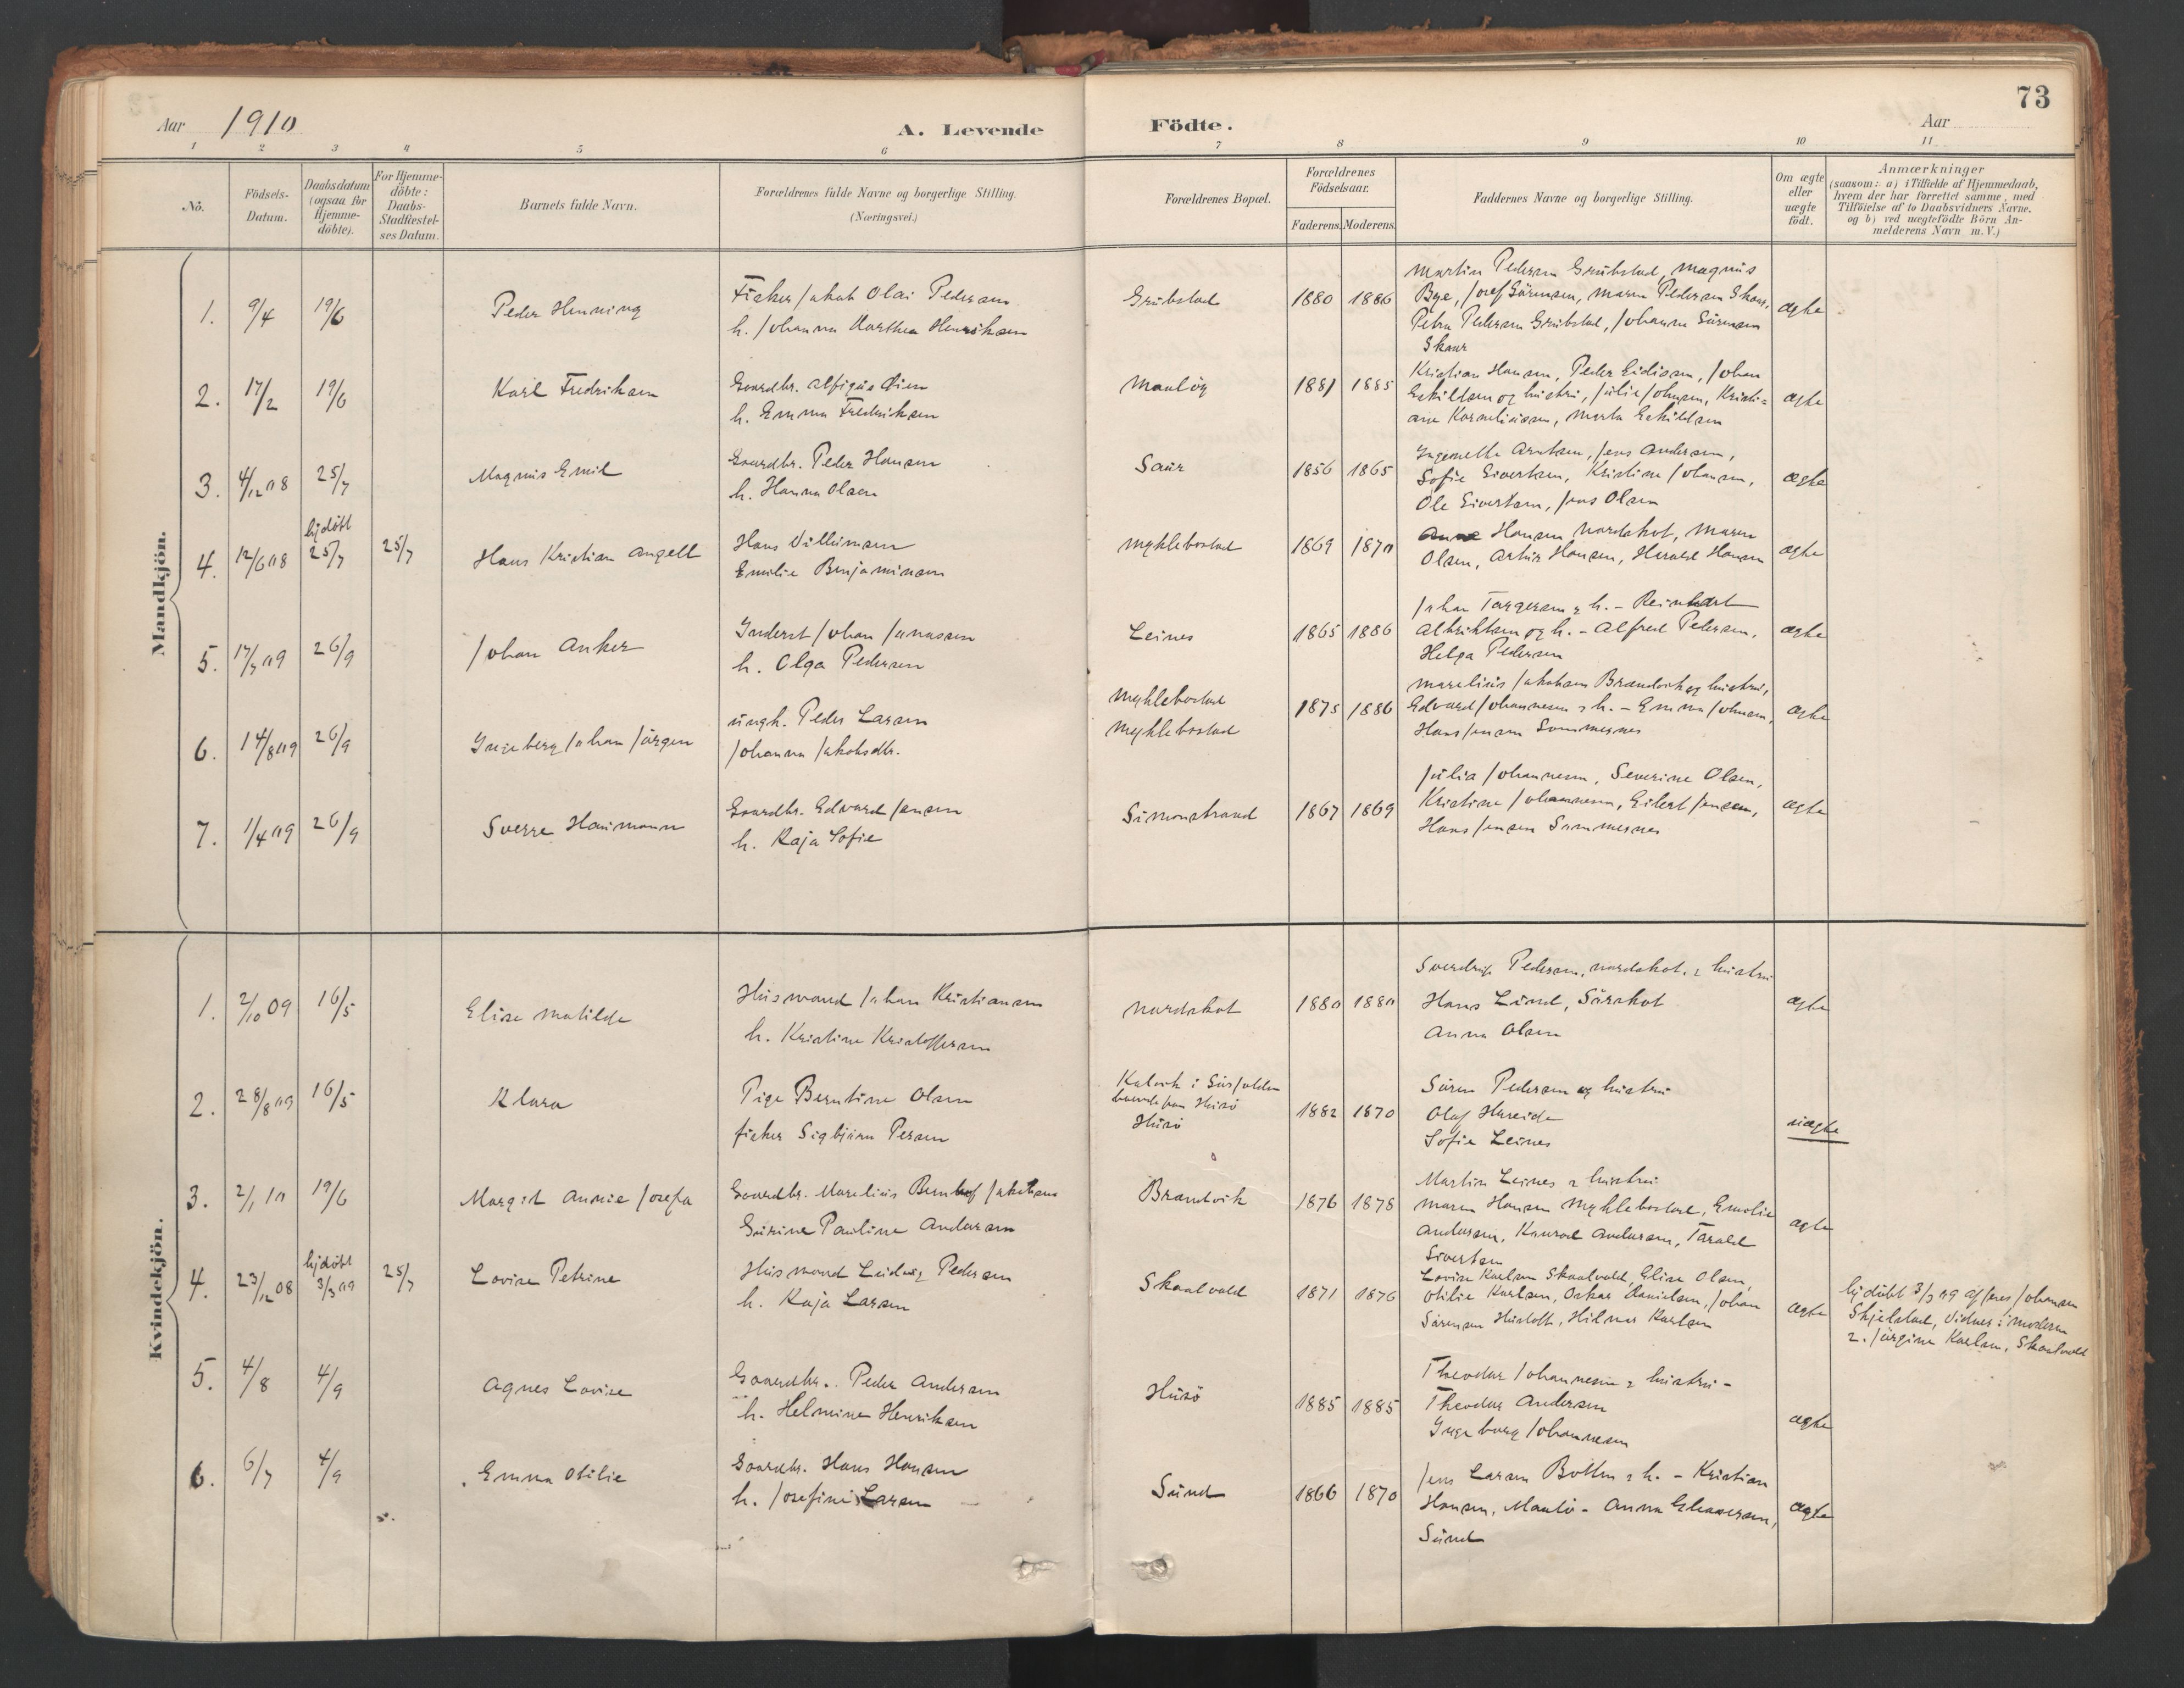 73
Aar 1910 A. Levende Födte. Aar
1 2 3 4 5 6 7 8 9 10 11
No.
Födsels-Datum.
Daabsdatum (ogsaa for Hjemmedöbte).
For Hjemmedöbte: Daabs-Stadfæstelses Datum.
Barnets fulde Navn.
Forældrenes fulde Navne og borgerlige Stilling. (Næringsvei.)
Forældrenes Bopæl.
Forældrenes Födselsaar.
Faderens. Moderens.
Faddernes Navne og borgerlige Stilling.
Om ægte eller uægte födt.
Anmærkninger (saasom: a) i Tilfælde af Hjemmedaab, hvem der har forrettet samme, med Tilföielse af to Daabsvidners Navne. og b) ved uægtefödte Börn Anmelderens Navn m. V.)
Mandkjön.
1. 9/4 19/6 Peder Henning
Fisker Jakob Olai Pedersen
h. Johanna Marthea Henriksen
Grübstad 1880 1886
Martin Pedersen Grübstad, Magnus
Bye, Josef Sörensen, Maren Pedersen Skaur,
Petra Pedersen Grübstad, Johanna Sörensen
Skaur
ægte
2. 17/2 19/6 Karl Fredriksen
Gaardbr. Alfigüs Öien
h. Emma Fredriksen
Manlög 1881 1885
Kristian Hansen, Peder Eidissen, Johan
Eskildsen og hüstrü, Jülie Johnsen, Kristi=
ane Korneliüssen, Marta Eskildsen
ægte
3. 4/12 08 25/7 Magnüs Emil
Gaardbr. Peder Hansen
h. Hanna Olsen
Saür 1856 1865
Ingemette Arntsen, Jens Andersen,
Sofie Sivertsen, Kristine Johansen,
Ole Sivertsen, Jens Olsen
ægte
4. 12/6 08 hjdöbt 25/7 25/7 Hans Kristian Angell
Hans Villümsen
Emilie Benjaminsen
Myklebostad 1869 1870
Anna Hansen Nordskot, Maren
Olsen, Artür Hansen, Herald Hansen
ægte
5. 17/7 09 26/9 Johan Anker
Inderst Johan Jonassen
h. Olga Pedersen
Leines 1865 1886
Johan Torgersen & h. - Reinhart
Albriktsen og h. - Alfred Pedersen,
Helga Pedersen
ægte
6. 14/8 09 26/9 Ingeberg Johan Jörgen
üngk. Peder Larsen
Johanna Jakobsdtr.
Myklebostad
Myklebostad
1875 1886
Marelius Jakobsen Brandvik og hüstrü,
Edvard Johannesen & h. - Emma Johnsen,
Hans Jensen Sommernes
ægte
7. 1/4 09 26/9 Sverre Haümann
Gaardbr. Edvard Jensen
h. Kaja Sofie
Simonstrand 1867 1869
Jülia Johannesen, Severine Olsen,
Kristine Johannesen, Eilert Jensen,
Hans Jensen Sommernes
ægte
Kvindekjön.
1. 2/10 09 16/5 Elise Matilde
Hüsmand Johan Kristiansen
h. Kristine Kristoffersen
Nordskot 1880 1880
Sverdrüp Pedersen, Nordskot, & hüstrü
Hans Lünd, Sörskot
Anna Olsen
ægte
2. 28/8 09 16/5 Klara
Pige Berntine Olsen
fisker Sigbjörn Persen
Kalvik i Sörfolden
Hüsö
1882 1870
Sören Pedersen og hüstrü
Olaf Hareide
Sofie Leines
üægte
3. 2/1 10 19/6 Margit Annie Josefa
Gaardbr. Marelius Bernhof Jakobsen
Guirine Pauline Andersen
Brandvik 1876 1878
Martin Leines & hüstrü
Maren Hansen Myklebostad, Emilie
Andersen, Konrad Andersen, Tarald
Sivertsen
ægte
4. 23/12 08 hjdöbt 3/3 09 25/7 Lovise Petrine
Hüsmand Lüdvig Pedersen
h. Kaja Larsen
Skaalvold 1871 1876
Lovise Karlsen Skaalvold, Elise Olsen,
Otilie Karlsen, Oskar Danielsen, Johan
Sörensen Hüstoft, Hilmar Karlsen
ægte
hjdöbt 3/3 09 af Jens Johansen
Skjelstad, Vidner: moderen
& Jörgine Karlsen, Skaalvold
5. 4/8 4/9 Agnes Lovise
Gaardbr. Peder Andersen
h. Helmine Henriksen
Hüsö 1885 1885
Theodor Johannesen & hüstrü -
Theodor Andersen
Ingeborg Johannesen
ægte
6. 6/7 4/9 Emma Otilie
Gaardbr. Hans Hansen
h. Josefine Larsen
Sünd 1866 1870
Jens Larsen Botten & h. - Kristian
Hansen, Manlö - Anna Eliassen,
Sünd
ægte